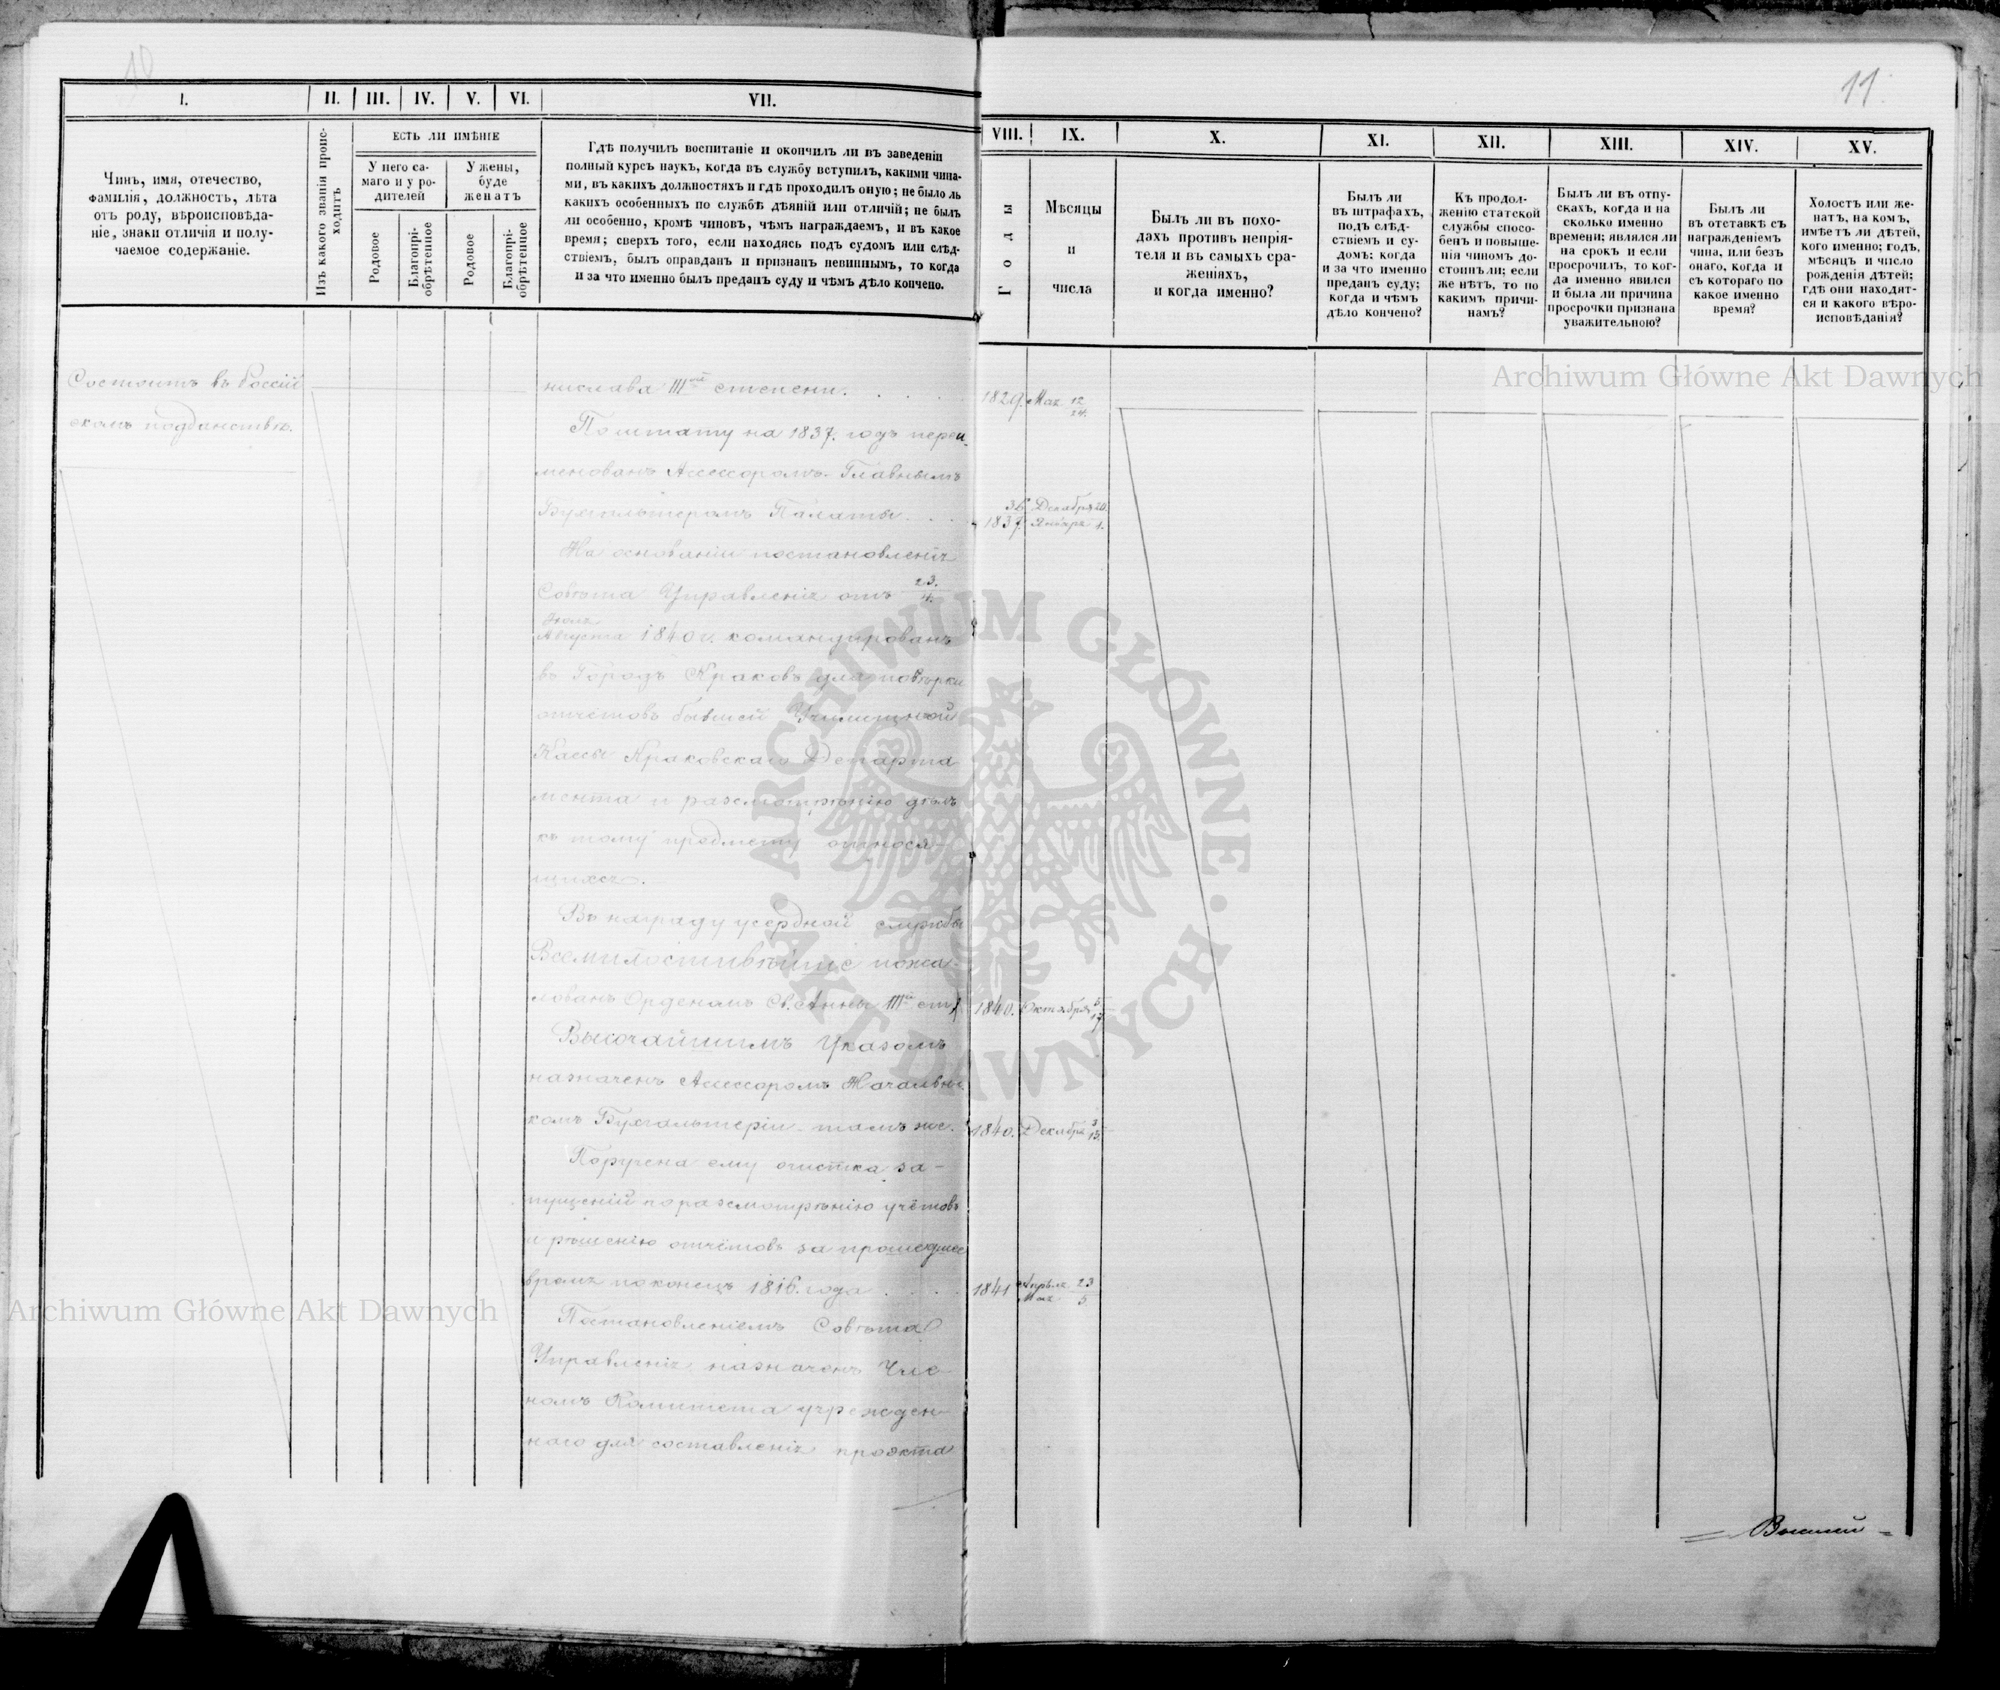 10
I.
II.
III.
IV.
V.
VI.
VII.
Чинъ, имя, отечество,
фамилія, должность, лѣта
отъ роду, вѣроисповѣда-
ніе, знаки отличія и полу-
чаемое содержаніе.
Изъ какого званія проис-
ходитъ
ЕСТЬ ЛИ ИМѢНІЕ
У него са-
маго и у ро-
дителей
У жены,
буде
женатъ
Родовое
Благопрі-
обрѣтенное
Родовое
Благопрі-
обрѣтенное
Гдѣ получилъ воспитаніе и окончилъ ли въ заведеніи
полный курсъ наукъ, когда въ службу вступилъ, какими чина-
ми, въ какихъ должностяхъ и гдѣ проходилъ оную; не было ль
какихъ особенныхъ по службѣ дѣяній или отличій; не былъ
ли особенно, кромѣ чиновъ, чѣмъ награждаемъ, и въ какое
время; сверхъ того, если находясь подъ судомъ или слѣд-
ствіемъ, былъ оправданъ и признанъ невиннымъ, то когда
и за что именно былъ преданъ суду и чѣмъ дѣло кончено.
Состоитъ въ Россій
скомъ подданствѣ.
нислава III ой степени.
По штату на 1837. годъ переи
менованъ Ассессоромъ-Главнымъ
Бухгальтеромъ Палаты
На основаніи постановленія
Совѣта Управленія отъ 23/4.
Іюля
Августа 1840 г. командированъ
въ Городъ Краковъ для повѣрки
отчётовъ бывшей Училищной
Кассы Краковскаго Департа
мента и разсмотрѣнію дѣлъ
къ тому предмету относя-
щихся.
Въ награду усердной службы
Всемилостивѣйше пожа-
лованъ Орденомъ Св. Анны III ей ст.
Высочайшимъ Указомъ
назначенъ Ассессоромъ Начальни
комъ Бухгальтеріи тамъ же.
Поручена ему очистка за-
пущеній по разсмотрѣнію учётовъ
и рѣшенію отчётовъ за прошедшее
время по конецъ 1816. года
Постановленіемъ Совѣта
Управленія назначенъ Чле
номъ Комитета учрежден
наго для составленія проэкта
11.
VIII.
IX.
X.
XI.
XII.
XIII.
XIV.
XV.
Годы
Мѣсяцы
и
числа
Былъ ли въ похо-
дахъ противъ непрія-
теля и въ самыхъ сра-
женіяхъ,
и когда именно?
Былъ ли
въ штрафахъ,
подъ слѣд-
ствіемъ и су-
домъ; когда
и за что именно
преданъ суду;
когда и чѣмъ
дѣло кончено?
Къ продол-
женію статской
службы спосо-
бенъ и повыше-
нія чиномъ до-
стоинъ ли; если
же нѣтъ, то по
какимъ причи-
намъ?
Былъ ли въ отпу-
скахъ, когда и на
сколько именно
времени; являлся ли
на срокъ и если
просрочилъ, то ког-
да именно явился
и была ли причина
просрочки признана
уважительною?
Былъ ли
въ отставкѣ съ
награжденіемъ
чина, или безъ
онаго, когда и
съ котораго по
какое именно
время?
Холостъ или же-
натъ, на комъ,
имѣетъ ли дѣтей,
кого именно; годъ,
мѣсяцъ и число
рожденія дѣтей;
гдѣ они находят-
ся и какого вѣро-
исповѣданія?
1829. Мая 12/24.
36 Декабря 20.
1837. Января 1.
1840. Октября 5/17
1840. Декабря 3/15.
1841 Апрѣля 23
Мая 5
Archiwum Główne Akt Dawnych
Archiwum Główne Akt Dawnych
ARCHIWUM GŁÓWNE · AKT DAWNYCH ·